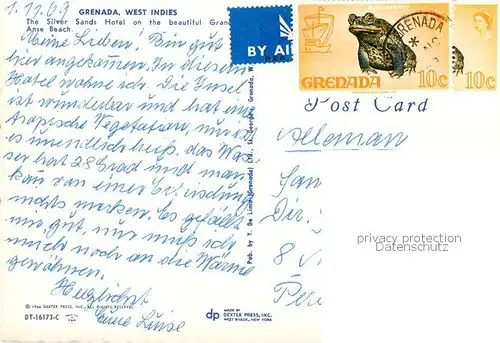 1.11.69
GRENADA, WEST INDIES
The Silver Sands Hotel on the beautiful Gran
Anse Beach.
Meine Lieben. Bin gut
hier angekommen. In diesem
Hotel wohne ich. Die Insel
ist wunderbar und hat eine
tropische Vegetation, nur ist
es unendlich heiß, das Was-
ser hat 28 Grad und man
kann von einer Erfrischung
nichts merken. Es gefällt
mir gut, nur muß ich
mich noch an die Wärme
gewöhnen.
Herzlichst
Luise
© 1966 DEXTER PRESS, INC. ALL RIGHTS RESERVED
DT-16173-C
Pub. by Y. De Lima (Grenada) Ltd., St. George's, Grenada, W.
dp
MADE BY
DEXTER PRESS, INC.
WEST NYACK, NEW YORK
BY AI
GRENADA
10c
10c
GRENADA
Post Card
Aleman
San
Dir.
8
Per
privacy protection
Datenschutz